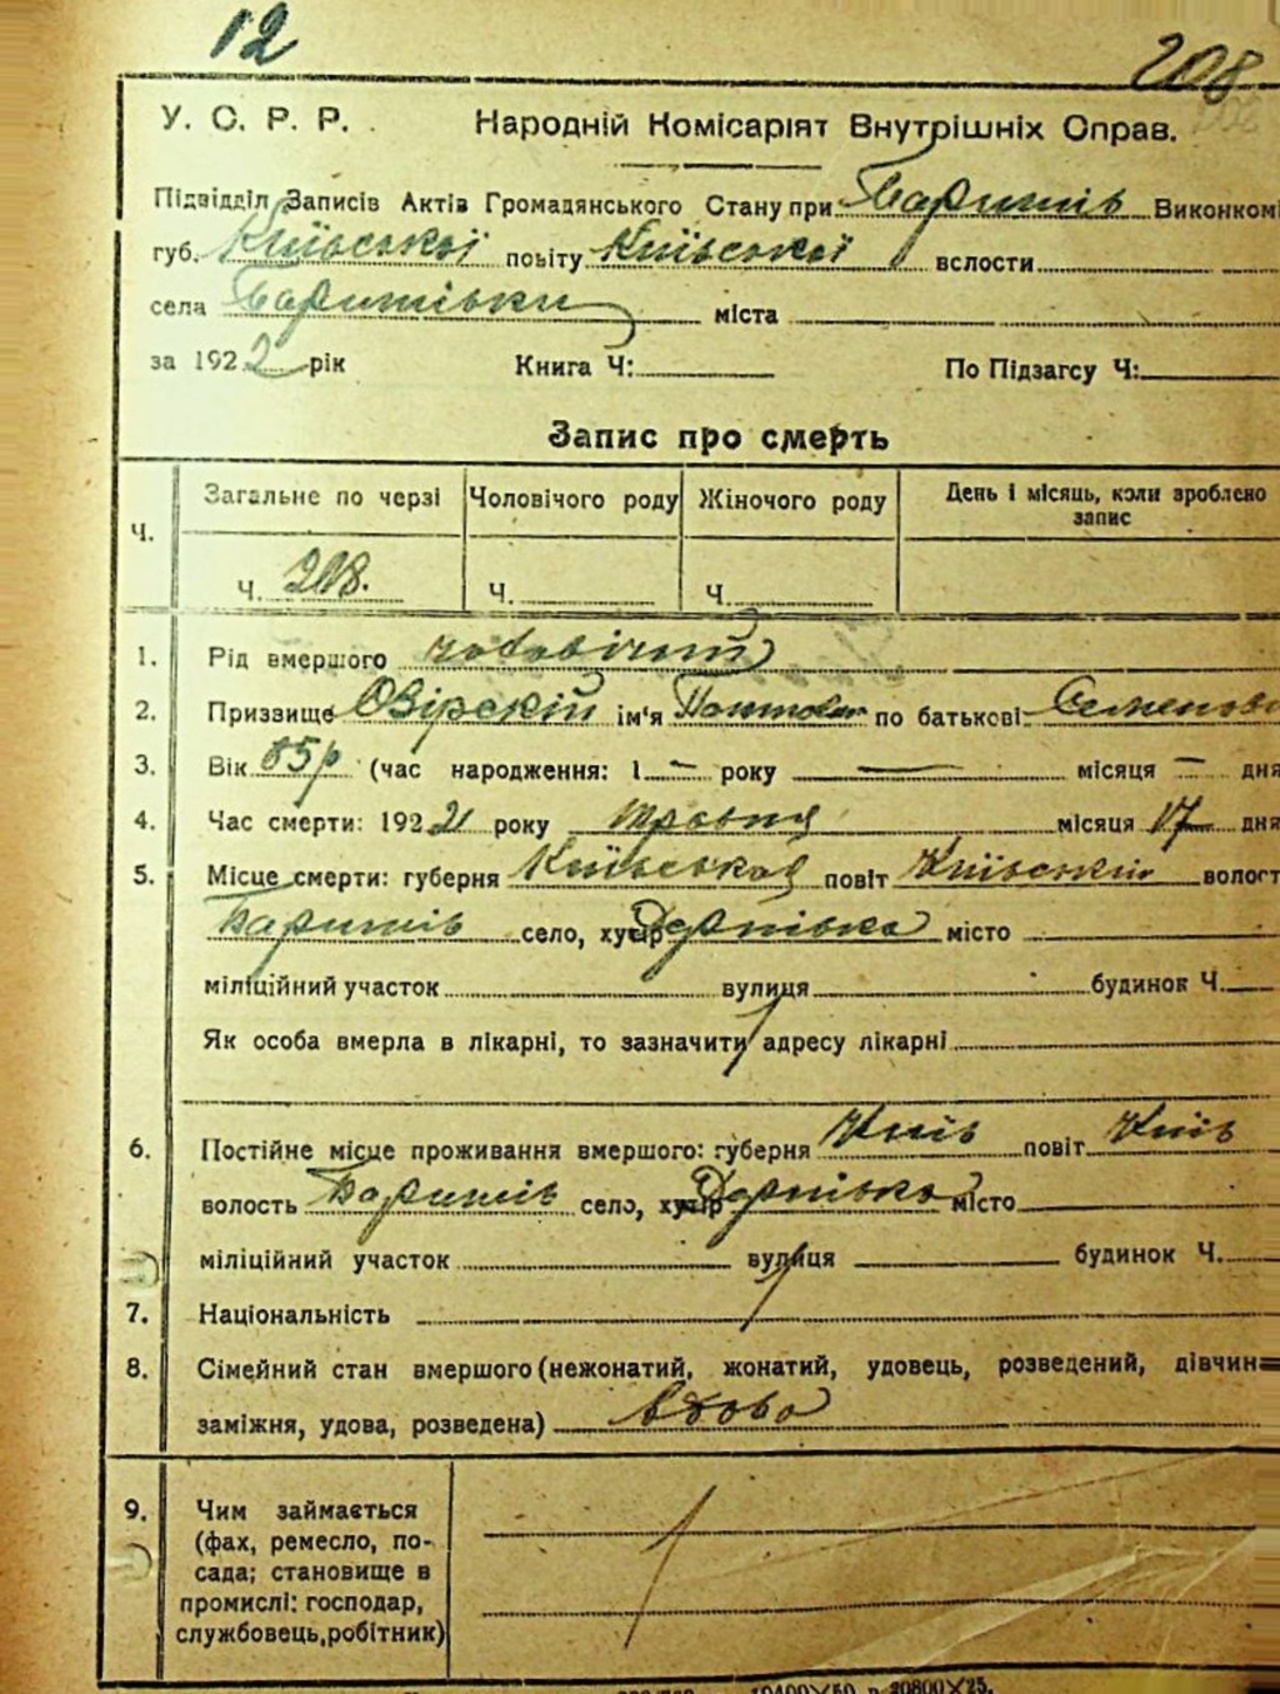 12
208
У. С. Р. Р. Народній Комісаріят Внутрішніх Справ.
Підвідділ Записів Актів Громадянського Стану при Баришів Виконкомі
губ. Київської повіту Київської вслости
села Баришівки міста
за 1922 рік Книга Ч: По Підзагсу Ч:
Запис про смерть
Ч. Загальне по черзі Чоловічого роду Жіночого роду День і місяць, коли зроблено запис
Ч. 208. Ч. Ч.
1. Рід вмершого чоловічий
2. Призвище Овірскій ім'я по батькові: Семенов
3. Вік 85р (час народження: 1 — року — місяця — дня
4. Час смерти: 1922 року травня місяця 17 дня
5. Місце смерти: губерня Київськая повіт Київський волост
Баришів село, хутір Дернівка місто
міліційний участок вулиця будинок Ч.
Як особа вмерла в лікарні, то зазначити адресу лікарні
6. Постійне місце проживання вмершого: губерня Київ повіт Київ
волость Баришів село, хутір Дернівка місто
міліційний участок вулиця будинок Ч.
7. Національність
8. Сімейний стан вмершого (нежонатий, жонатий, удовець, розведений, дівчин=
заміжня, удова, розведена) вдова
9. Чим займається
(фах, ремесло, по-
сада; становище в
промислі: господар,
службовець, робітник)
10400×50 в 20800×25.